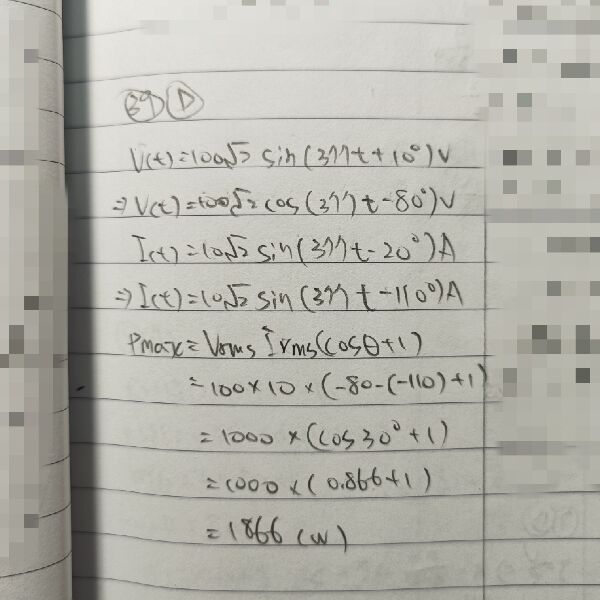 39 D
V(t)=100√2 sin(377t+10°)V
⇒V(t)=100√2 cos(377t-80°)V
I(t)=10√2 sin(377t-20°)A
⇒I(t)=10√2 sin(377t-110°)A
Pmax=Vrms Irms(cosθ+1)
=100×10×(-80-(-110)+1)
=1000×(cos30°+1)
=1000×(0.866+1)
=1866(W)